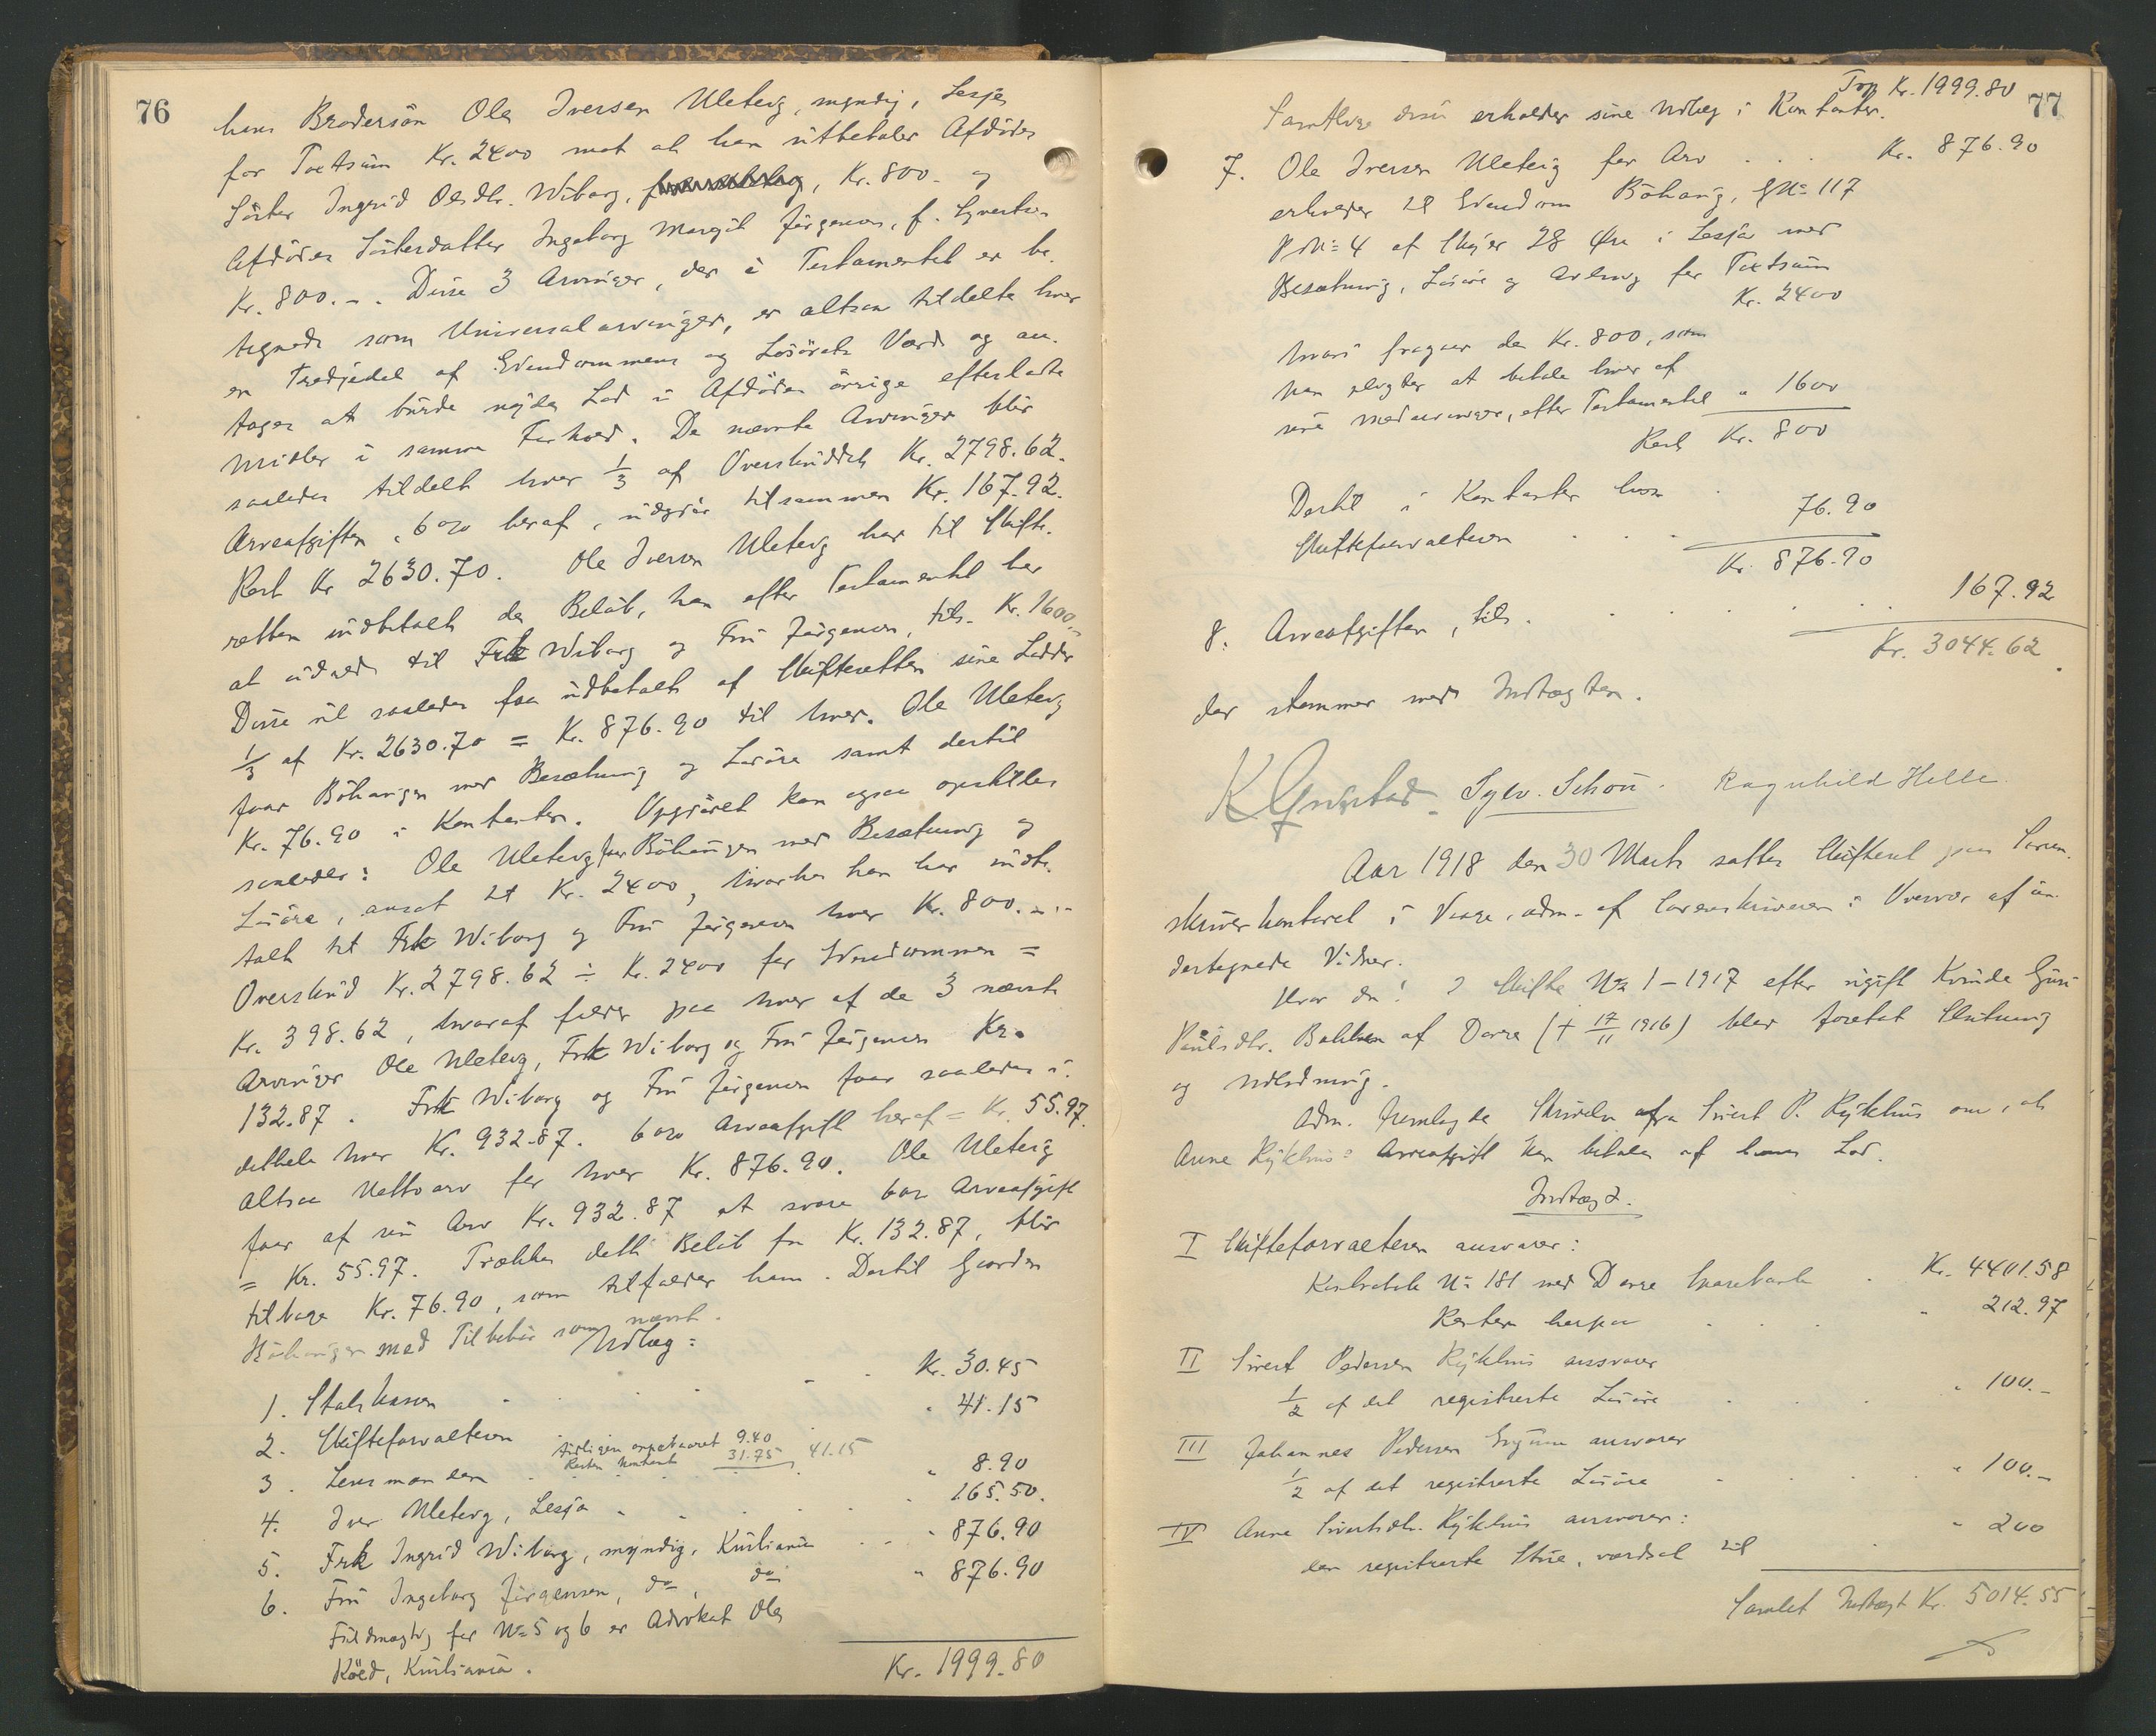 76
hans Brodersön Ole Iversen Uleteig, myndig, Lesje
for Taxtsum Kr. 2400 mot at han utbetaler Afdödes
Söster Ingrid Olsdtr. Wiborg, Kr. 800.- og
Afdödes Sösterdatter Ingeborg Margit Jörgensen, f. Syvertsen
Kr. 800.-. Disse 3 Arvinger, der i Testamentet er be-
tegnede som Universalarvinger, er altsaa tildelte hver
en Trediedel af Eiendommens og Lösörets Værd og an-
tages at burde nyde Lod i Afdödes övrige efterladte
Midler i samme Forhold. De nævnte Arvinger blir
saaledes tildelt hver 1/3 af Overskuddet Kr. 2798.62.
Arveafgiften, 6 % heraf, udgjör tilsammen Kr. 167.92.
Rest Kr 2630.70. Ole Iversen Uleteig har til Skifte-
retten indbetalt de Belöb, han efter Testamentet har
at udrede til Frk Wiborg og Fru Jörgensen, tils. Kr. 1600.-
Disse vil saaledes faa udbetalt af Skifteretten sine Lodder
1/3 af Kr. 2630.70 = Kr. 876.90 til hver. Ole Uleteig
faar Böhaugen med Besætning og Lösöre samt dertil
Kr. 76.90 i Kontanter. Opgjöret kan ogsaa opstilles
saaledes: Ole Uleteig faar Böhaugen med Besætning og
Lösöre, ansat til Kr. 2400, hvorfra han har indbe-
talt til Frk Wiborg og Fru Jörgensen hver Kr. 800.-.-
Overskud Kr. 2798.62 ÷ Kr. 2400 for Eiendommen =
Kr. 398.62, hvoraf falder paa hver af de 3 nævnte
Arvinger Ole Uleteig, Frk Wiborg og Fru Jörgensen Kr.
132.87. Frk Wiborg og Fru Jörgensen faar saaledes i
dethele hver Kr. 932.87. 6 % Arveafgift heraf = Kr. 55.97.
Altsaa Nettoarv for hver Kr. 876.90. Ole Uleteig
faar af sin Arv Kr. 932.87 at svare 6 % Arveafgift
= Kr. 55.97. Trækkes dette Belöb fra Kr. 132.87, blir
tilbage Kr. 76.90, som tilfalder ham. Dertil Gaarden
Böhaugen med Tilbehör som nævnt.
Udlæg:
1. Statskassen Kr. 30.45
2. Skifteforvalteren " 41.15
Tidligere oppebaaret 9.40
Resten kontant 31.75 41.15
3. Lensmanden " 8.90
4. Iver Uleteig, Lesja " 165.50.
5. Frk Ingrid Wiborg, myndig, Kristiania " 876.90
6. Fru Ingeborg Jörgensen, do, do " 876.90
Fuldmægtig for No 5 og 6 er Advokat Ole
Röed, Kristiania.
Kr. 1999.80
77
Trsp Kr. 1999.80
Samtlige disse erholder sine Udlæg i Kontanter.
7. Ole Iversen Uleteig for Arv Kr. 876.90
erholder til Eiendom Böhaug, GNo 117
BNo 4 af Skyer 28 Øre i Lesja med
Besætning, Lösöre og Avling for Taxtsum
Kr. 2400
hvori fragaar de Kr. 800, som
han plegter at betale hver af
sine Medarvinger, efter Testamentet " 1600
Rest Kr. 800
Dertil i Kontanter hos
Skifteforvalteren 76.90
Kr. 876.90
8. Arveafgiften, tils. 167.92
Kr. 3044.62
der stemmer med Indtægten.
Sylv. Schou. Ragnhild Helle.
Aar 1918 den 30 Marts sattes Skifteret paa Soren-
skriverkontoret i Vaage, adm. af Sorenskriveren i Overvær af un-
dertegnede Vidner.
Hvor da: I Skifte No 1-1917 efter ugift Kvinde Guri
Paulsdtr. Bakken af Dovre († 17/11 1916) blev foretat Slutning
og Udlodning.
Adm. fremlagde Skrivelse fra Sivert P. Rykhus om, at
Anne Rykhus' Arveafgift kan betales af hans Lod.
Indtægt.
I Skifteforvalteren ansvarer:
Kontrabok No 181 med Dovre Sparebank Kr. 4401.58
Renter herpaa " 212.97
II Sivert Pedersen Rykhus ansvarer
1/2 af det registrerte Lösöre " 100.-
III Johannes Pedersen ansvarer
1/2 af det registrerte Lösöre " 100.-
IV Anne Sivertsdtr. Rykhus ansvarer:
den registrerte Stue, værdsat til " 200
Samlet Indtægt Kr. 5014.55